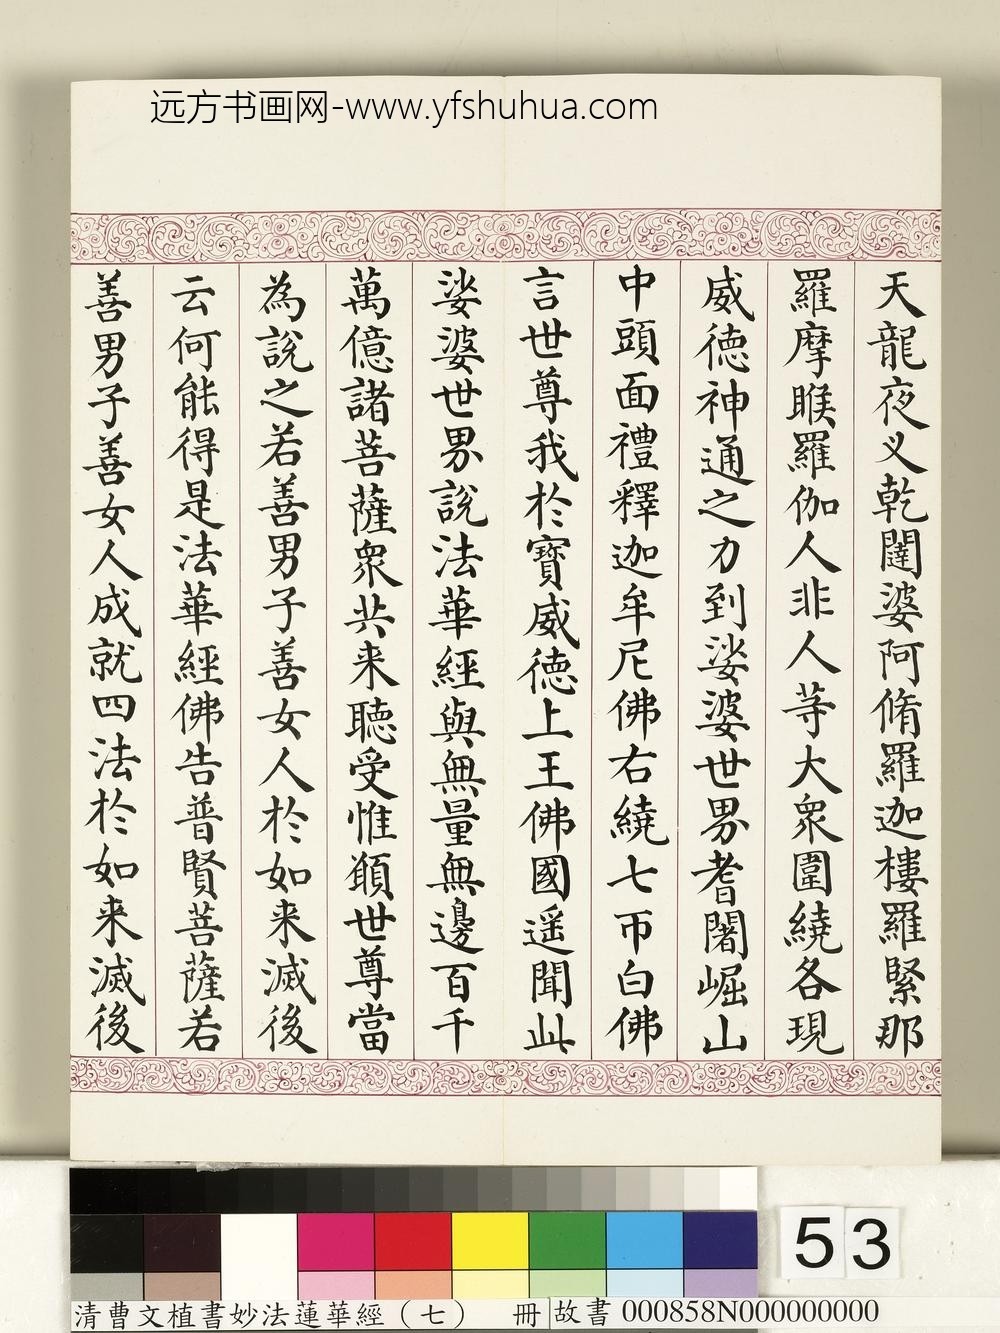 远方书画网-www.yfshuhua.com
天龍夜义乾闥婆阿脩羅迦樓羅緊那
羅摩睺羅伽人非人等大衆圍繞各現
威德神通之力到娑婆世界耆闍崛山
中頭面禮釋迦牟尼佛右繞七帀白佛
言世尊我於寶威德上王佛國遥聞此
娑婆世界說法華經與無量無邊百千
萬億諸菩薩衆共来聽受惟願世尊當
為說之若善男子善女人於如来滅後
云何能得是法華經佛告普賢菩薩若
善男子善女人成就四法於如来滅後
53
清曹文植書妙法蓮華經（七） 冊 故書 000858N000000000